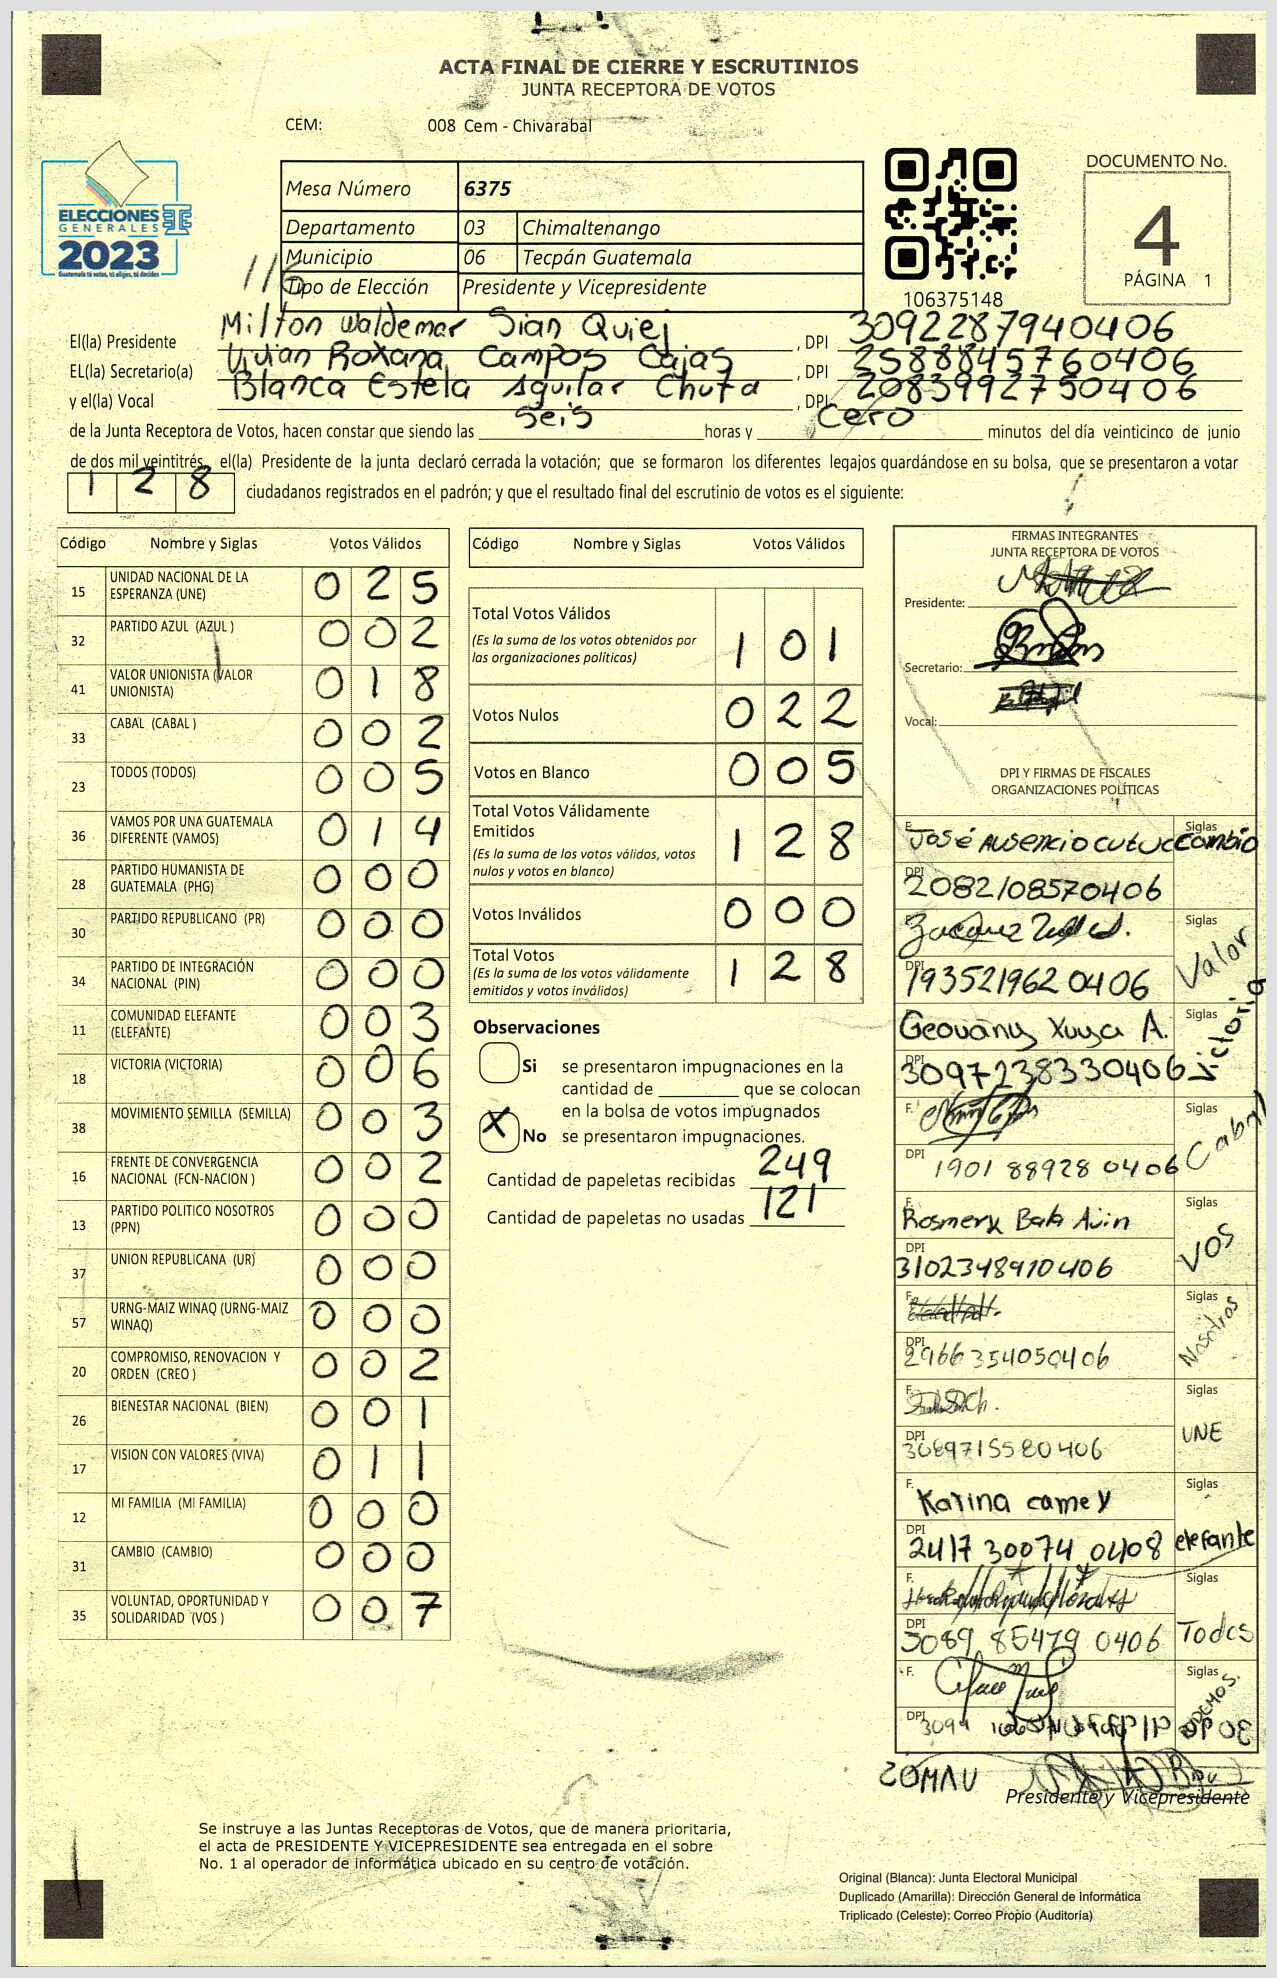 ACTA FINAL DE CIERRE Y ESCRUTINIOS
JUNTA RECEPTORA DE VOTOS
CEM: 008 Cem - Chivarabal
ELECCIONES
GENERALES
2023
Guatemala tú votas, tú eliges, tú decides
Mesa Número 6375
Departamento 03 Chimaltenango
Municipio 06 Tecpán Guatemala
116
Tipo de Elección Presidente y Vicepresidente
106375148
DOCUMENTO No.
4
PÁGINA 1
El(la) Presidente Milton Waldemar Sian Quiej, DPI 3092287940406
EL(la) Secretario(a) Vivian Roxana Campos Cajas, DPI 2588845760406
y el(la) Vocal Blanca Estela Aguilar Chuta, DPI 2083992750406
de la Junta Receptora de Votos, hacen constar que siendo las seis horas y cero minutos del día veinticinco de junio
de dos mil veintitrés, el(la) Presidente de la junta declaró cerrada la votación; que se formaron los diferentes legajos guardándose en su bolsa, que se presentaron a votar
128 ciudadanos registrados en el padrón; y que el resultado final del escrutinio de votos es el siguiente:
Código Nombre y Siglas Votos Válidos
15 UNIDAD NACIONAL DE LA ESPERANZA (UNE) 025
32 PARTIDO AZUL (AZUL ) 002
41 VALOR UNIONISTA (VALOR UNIONISTA) 018
33 CABAL (CABAL ) 002
23 TODOS (TODOS) 005
36 VAMOS POR UNA GUATEMALA DIFERENTE (VAMOS) 014
28 PARTIDO HUMANISTA DE GUATEMALA (PHG) 000
30 PARTIDO REPUBLICANO (PR) 000
34 PARTIDO DE INTEGRACIÓN NACIONAL (PIN) 000
11 COMUNIDAD ELEFANTE (ELEFANTE) 003
18 VICTORIA (VICTORIA) 006
38 MOVIMIENTO SEMILLA (SEMILLA) 003
16 FRENTE DE CONVERGENCIA NACIONAL (FCN-NACION ) 002
13 PARTIDO POLITICO NOSOTROS (PPN) 000
37 UNION REPUBLICANA (UR) 000
57 URNG-MAIZ WINAQ (URNG-MAIZ WINAQ) 000
20 COMPROMISO, RENOVACION Y ORDEN (CREO ) 002
26 BIENESTAR NACIONAL (BIEN) 001
17 VISION CON VALORES (VIVA) 011
12 MI FAMILIA (MI FAMILIA) 000
31 CAMBIO (CAMBIO) 000
35 VOLUNTAD, OPORTUNIDAD Y SOLIDARIDAD (VOS ) 007
Código Nombre y Siglas Votos Válidos
Total Votos Válidos 101
(Es la suma de los votos obtenidos por
las organizaciones políticas)
Votos Nulos 022
Votos en Blanco 005
Total Votos Válidamente
Emitidos 128
(Es la suma de los votos válidos, votos
nulos y votos en blanco)
Votos Inválidos 000
Total Votos 128
(Es la suma de los votos válidamente
emitidos y votos inválidos)
Observaciones
Si se presentaron impugnaciones en la
cantidad de ________ que se colocan
en la bolsa de votos impugnados
X No se presentaron impugnaciones.
Cantidad de papeletas recibidas 249
Cantidad de papeletas no usadas 121
FIRMAS INTEGRANTES
JUNTA RECEPTORA DE VOTOS
Presidente:
Secretario:
Vocal:
DPI Y FIRMAS DE FISCALES
ORGANIZACIONES POLÍTICAS
F. José Ausencio Cutuc Siglas Cambio
DPI 2082108570406
F. Siglas Valor
DPI 1935219620406
Geovany Xuya A. Siglas Victoria
DPI 3097238330406
F. Siglas Cabal
DPI 1901889280406
F. Rosmery Siglas VOS
DPI 3102348910406
F. Siglas Nosotros
DPI 2966354050406
F. Siglas UNE
DPI 3089715580406
F. Karina camey Siglas elefante
DPI 2417300740408
F. Siglas Todos
DPI 3089854790406
F. Siglas PODEMOS.
DPI 3094
Presidente y Vicepresidente
Se instruye a las Juntas Receptoras de Votos, que de manera prioritaria,
el acta de PRESIDENTE Y VICEPRESIDENTE sea entregada en el sobre
No. 1 al operador de informática ubicado en su centro de votación.
Original (Blanca): Junta Electoral Municipal
Duplicado (Amarilla): Dirección General de Informática
Triplicado (Celeste): Correo Propio (Auditoría)